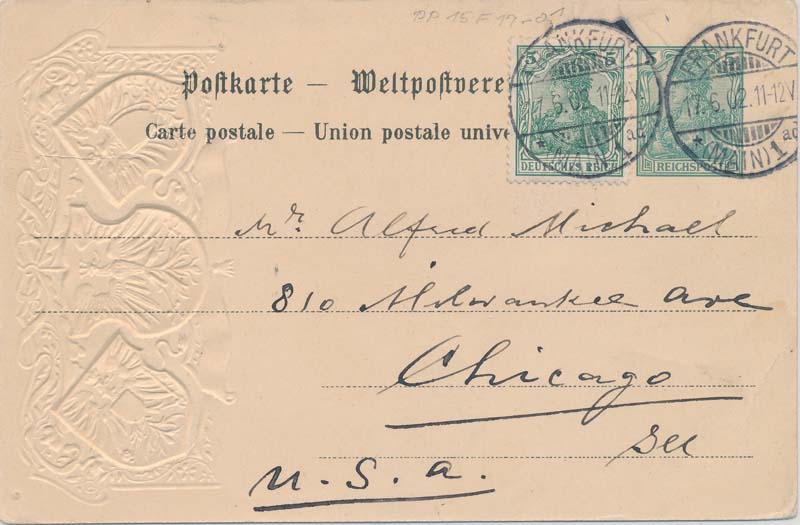 PP 15 F 19-01
Postkarte – Weltpostvere
Carte postale – Union postale unive
5 5
DEUTSCHES REICH
REICHSPOST
FRANKFURT
17.6.02.11-12V.
* (MAIN) 1 ad
FRANKFURT
17.6.02.11-12V.
* (MAIN) 1 ad
Mr. Alfred Michael
810 Milwaukee Ave
Chicago
Ill
U.S.A.